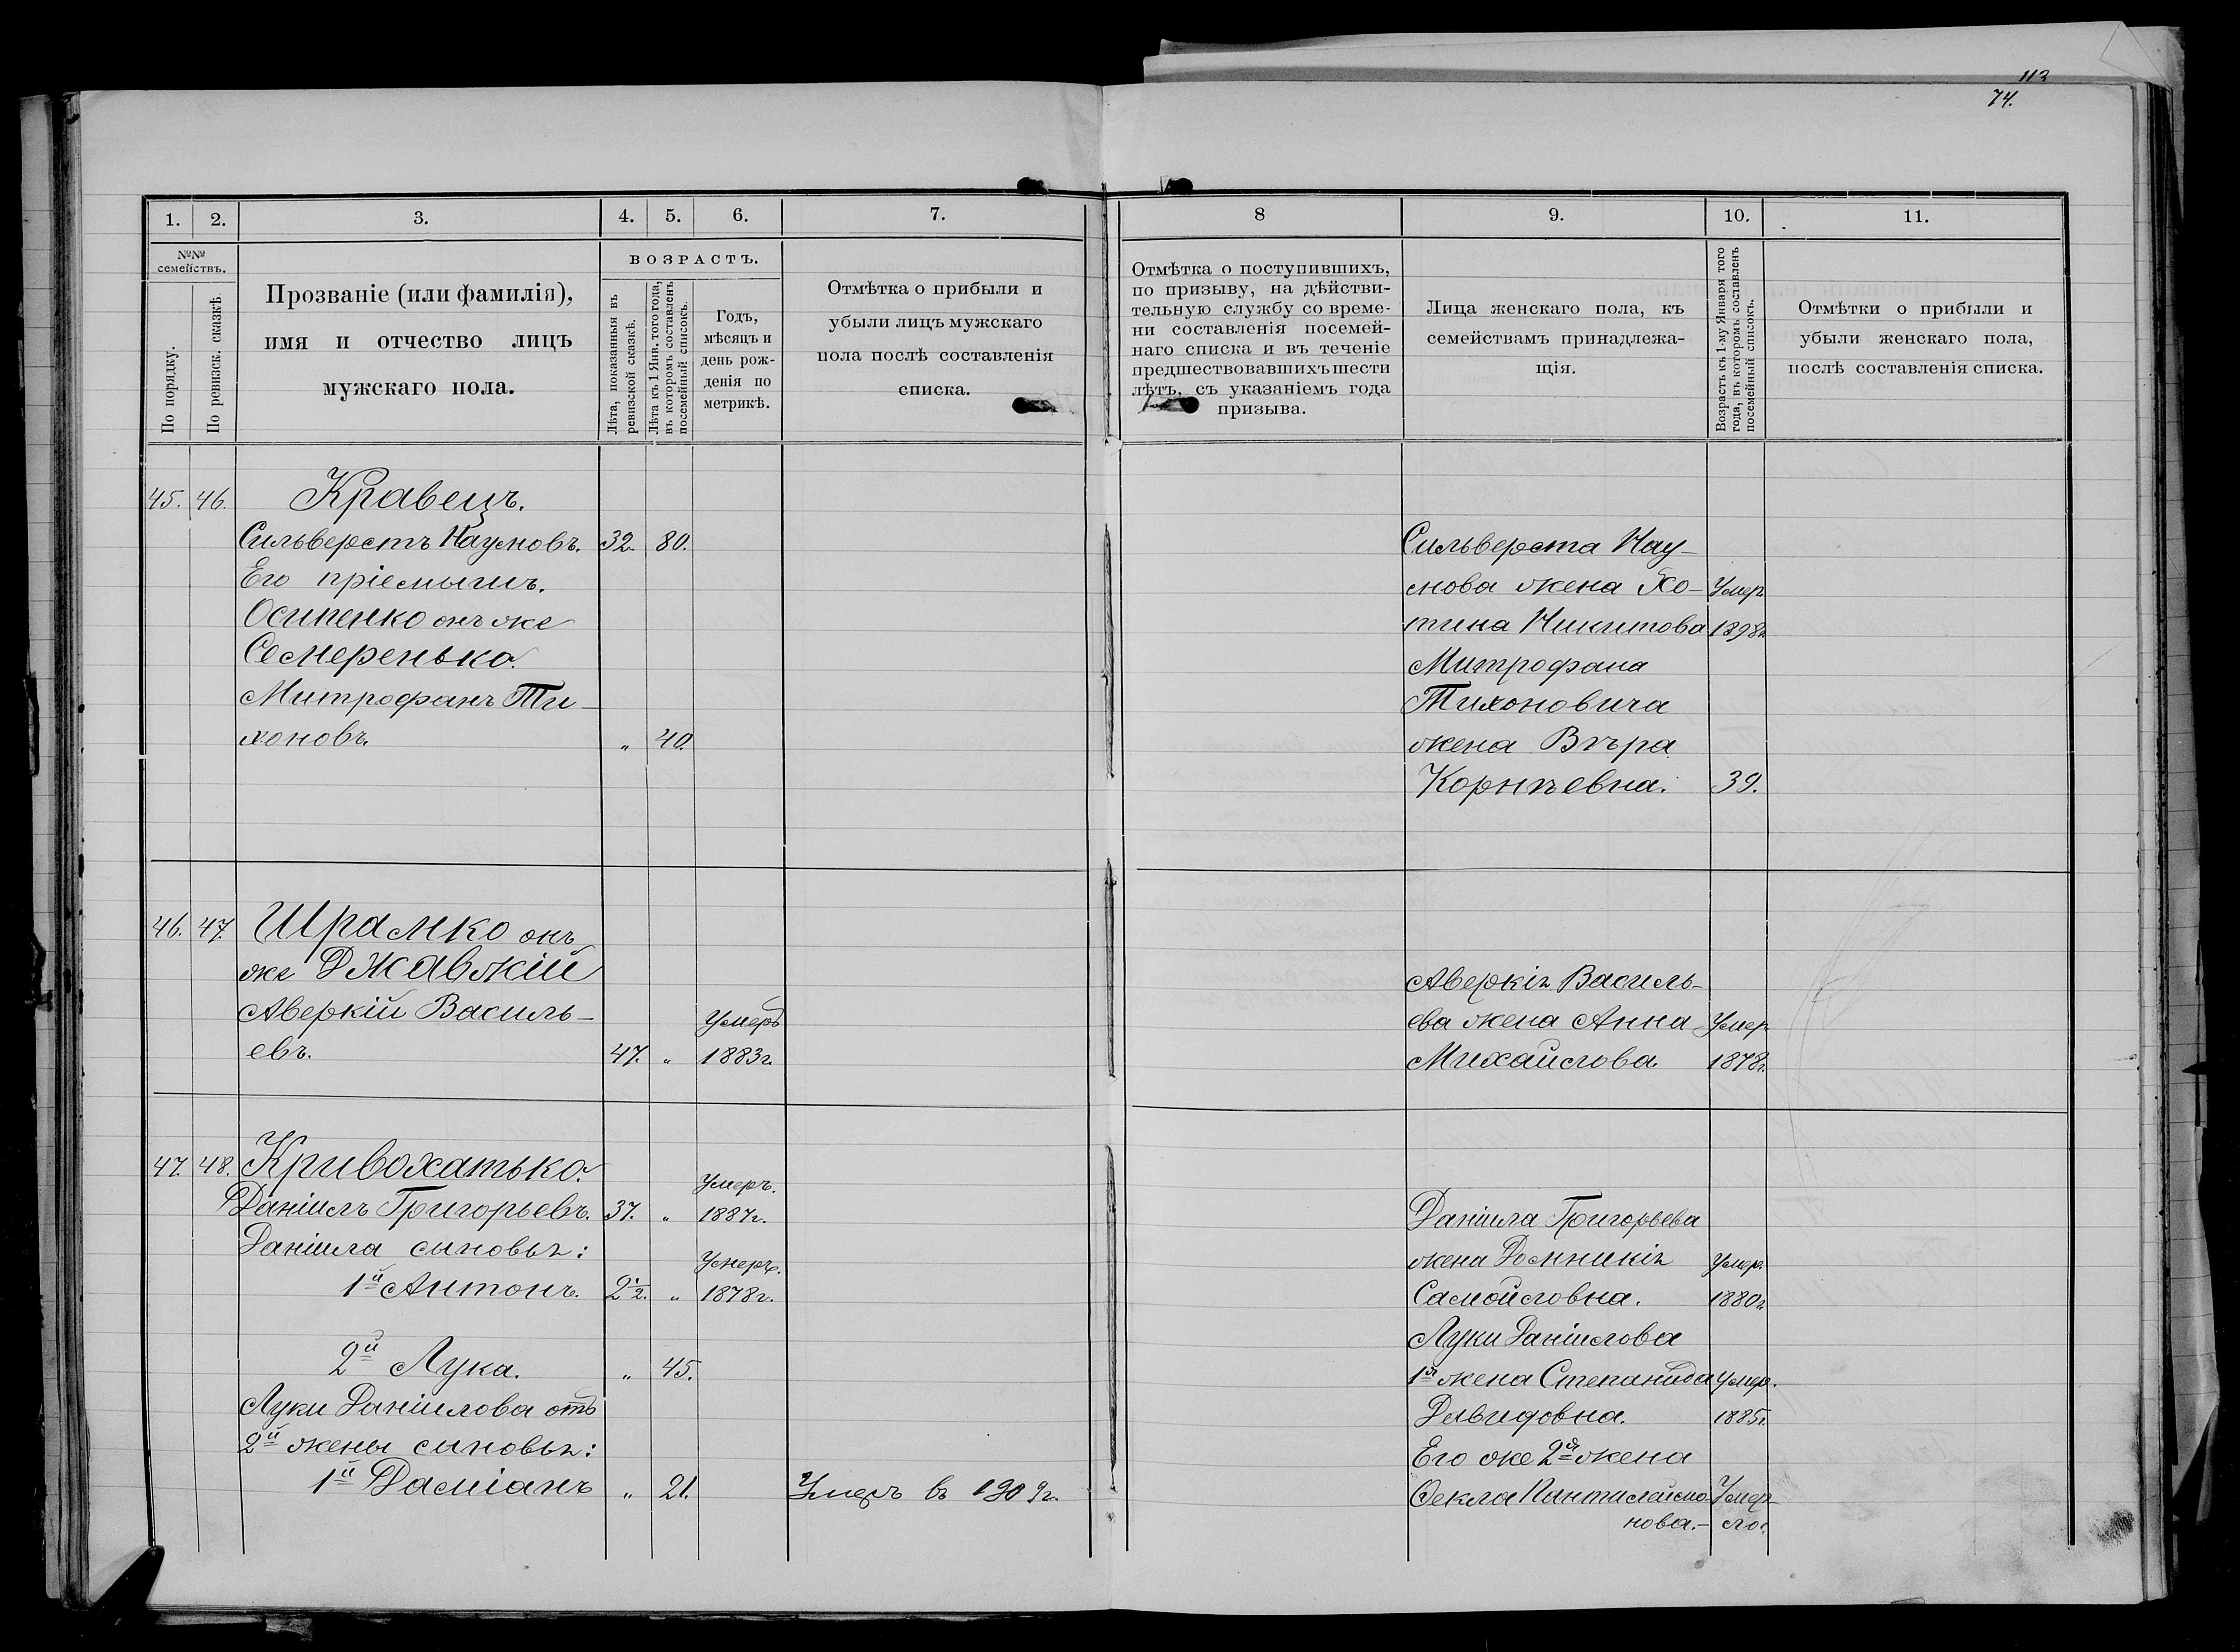 113
74.
1.
2.
3.
4.
5.
6.
7.
№№ семействъ.
По порядку.
По ревизск. сказкѣ.
Прозваніе (или фамилія),
имя и отчество лицъ
мужскаго пола.
ВОЗРАСТЪ.
Лѣта, показанныя въ
ревизской сказкѣ.
Лѣта къ 1 Янв. того года,
въ которомъ составленъ
посемейный списокъ.
Годъ,
мѣсяцъ и
день рож-
денія по
метрикѣ.
Отмѣтка о прибыли и
убыли лицъ мужскаго
пола послѣ составленія
списка.
45. 46. Кравецъ.
Сильверстъ Наумовъ. 32. 80.
Его пріемышъ.
Осипенко онъ же
Семеренько.
Митрофанъ Ти-
хоновъ. „ 40.
46. 47. Шрамко онъ
же Джавжій
Аверкій Василь- Умеръ
евъ. 47. „ 1883г.
47. 48. Кривохатько. Умеръ.
Даніилъ Григорьевъ. 37. „ 1887г.
Даніила сыновья: Умеръ.
1й Антонъ. 2½. „ 1878г.
2й Лука. „ 45.
Луки Даніилова отъ
2й жены сыновья:
1й Даміанъ „ 21. Умеръ въ 1909г.
8
9.
10.
11.
Отмѣтка о поступившихъ,
по призыву, на дѣйстви-
тельную службу со време-
ни составленія посемей-
наго списка и въ теченіе
предшествовавшихъ шести
лѣтъ, съ указаніемъ года
призыва.
Лица женскаго пола, къ
семействамъ принадлежа-
щія.
Возрастъ къ 1-му Января того
года, въ которомъ составленъ
посемейный списокъ.
Отмѣтки о прибыли и
убыли женскаго пола,
послѣ составленія списка.
Сильверста Нау-
мова жена Хо- Умер.
тина Никитова 1898г.
Митрофана
Тихоновича
жена Вѣра
Корнѣевна. 39.
Аверкія Василь-
ева жена Анна Умер.
Михайлова 1878г.
Даніила Григорьева
жена Домникія Умер.
Самойловна. 1880г.
Луки Даніилова
1я жена Степанида Умер.
Давидовна. 1885г.
Его же 2я жена
Ѳекла Пантилеймо- Умер-
нова.- ла.